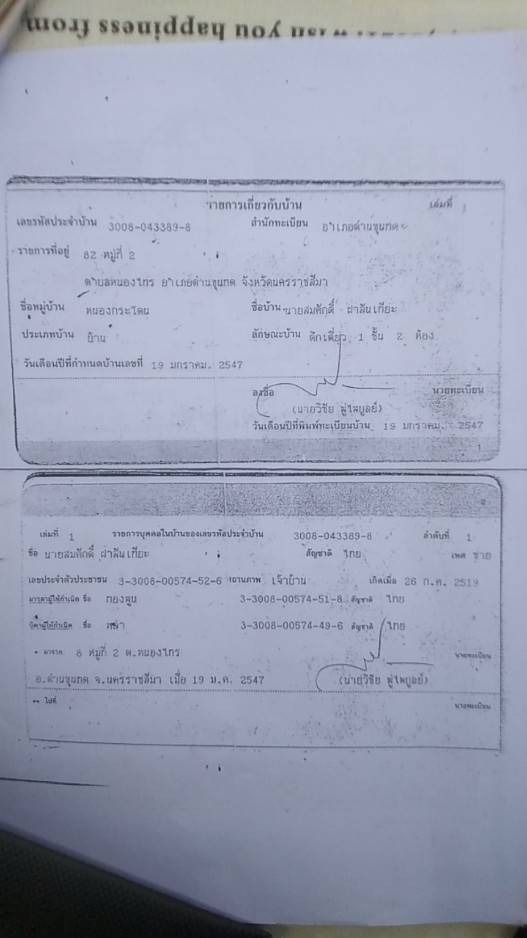 wish you happiness from
รายการเกี่ยวกับบ้าน เล่มที่ 1
เลขรหัสประจำบ้าน 3008-043389-8 สำนักทะเบียน อำเภอด่านขุนทด
รายการที่อยู่ 82 หมู่ที่ 2
ตำบลหนองไทร อำเภอด่านขุนทด จังหวัดนครราชสีมา
ชื่อหมู่บ้าน หนองกระโดน ชื่อบ้าน นายสมศักดิ์
ประเภทบ้าน บ้าน ลักษณะบ้าน ตึกเดี่ยว 1 ชั้น 2 ห้อง
วันเดือนปีที่กำหนดบ้านเลขที่ 19 มกราคม. 2547
ลงชื่อ นายทะเบียน
(นายวิชัย ผู่ไพบูลย์)
วันเดือนปีที่พิมพ์ทะเบียนบ้าน 19 มกราคม. 2547
1
2
เล่มที่ 1 รายการบุคคลในบ้านของเลขรหัสประจำบ้าน 3008-043389-8 ลำดับที่ 1
ชื่อ นายสมศักดิ์ สัญชาติ ไทย เพศ ชาย
เลขประจำตัวประชาชน 3-3008-00574-52-6 สถานภาพ เจ้าบ้าน เกิดเมื่อ 26 ก.ค. 2519
มารดาผู้ให้กำเนิด ชื่อ ทองสูน 3-3008-00574-51-8 สัญชาติ ไทย
บิดาผู้ให้กำเนิด ชื่อ 3-3008-00574-49-6 สัญชาติ ไทย
* มาจาก 8 หมู่ที่ 2 ต.หนองไทร นายทะเบียน
อ.ด่านขุนทด จ.นครราชสีมา เมื่อ 19 ม.ค. 2547 (นายวิชัย ผู่ไพบูลย์)
** ไปที่ นายทะเบียน